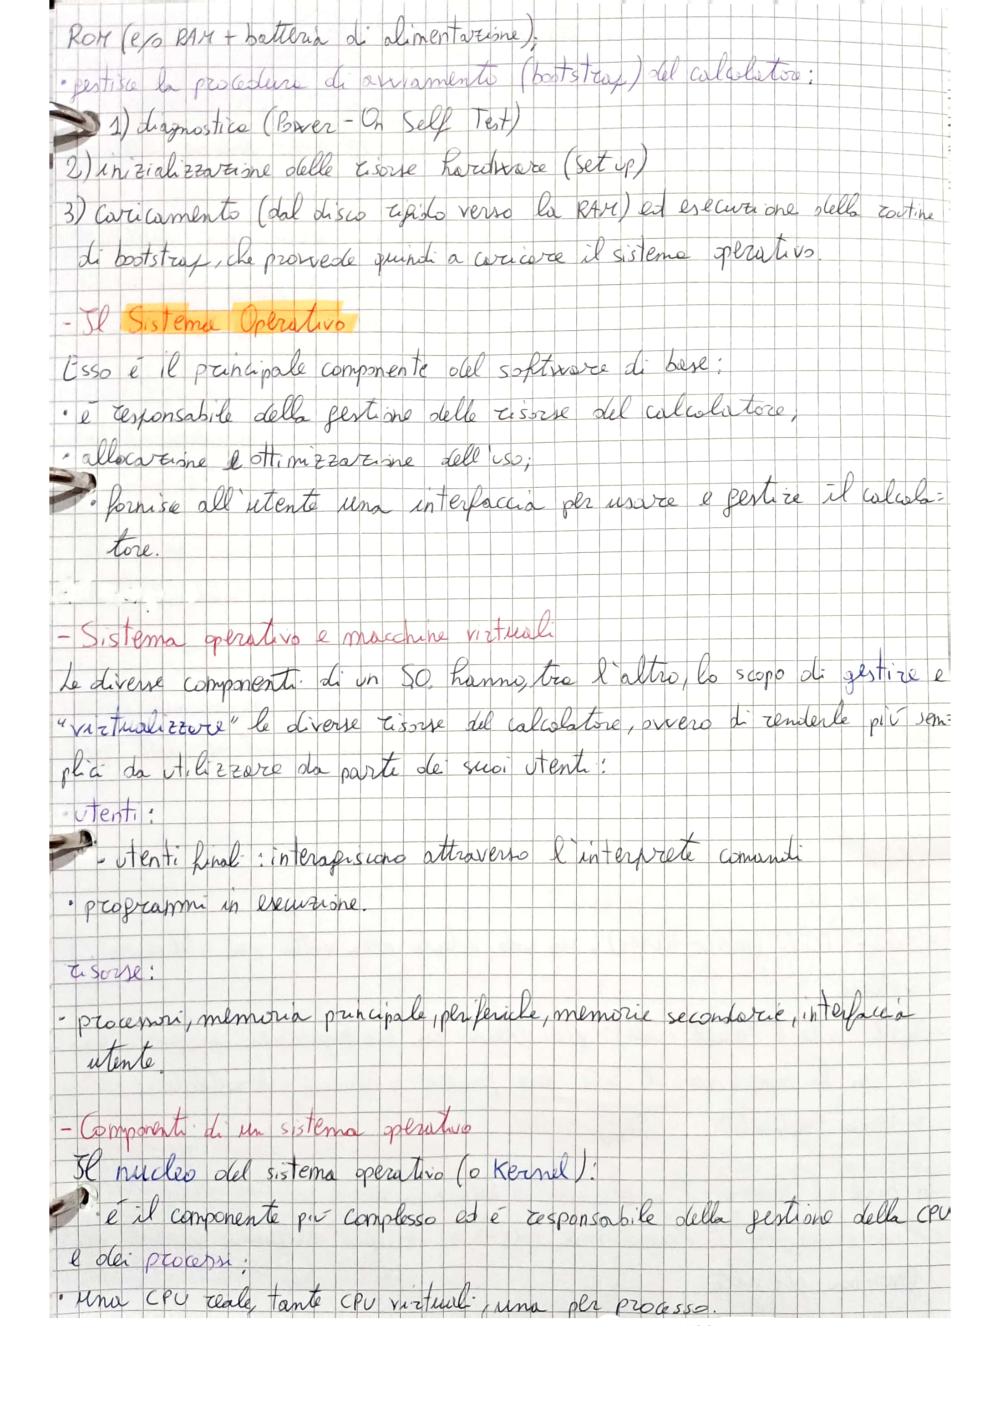 ROM (e/o RAM + batteria di alimentazione);
• gestisce la procedura di avviamento (bootstrap) del calcolatore:
1) diagnostica (Power-On Self Test)
2) inizializzazione delle risorse hardware (set up)
3) caricamento (dal disco rigido verso la RAM) ed esecuzione della routine
di bootstrap, che provvede quindi a caricare il sistema operativo.
- Il Sistema Operativo
Esso è il principale componente del software di base:
• è responsabile della gestione delle risorse del calcolatore,
• allocazione e ottimizzazione dell'uso;
• fornisce all'utente una interfaccia per usare e gestire il calcola=
tore.
- Sistema operativo e macchine virtuali
Le diverse componenti di un SO. hanno, tra l'altro, lo scopo di gestire e
"virtualizzare" le diverse risorse del calcolatore, ovvero di renderle più sem=
plici da utilizzare da parte dei suoi utenti:
• utenti:
- utenti finali: interagiscono attraverso l'interprete comandi
• programmi in esecuzione.
risorse:
- processori, memoria principale, periferiche, memorie secondarie, interfaccia
utente.
- Componenti di un sistema operativo
Il nucleo del sistema operativo (o Kernel):
• è il componente più complesso ed è responsabile della gestione della CPU
e dei processi;
• una CPU reale, tante CPU virtuali, una per processo.